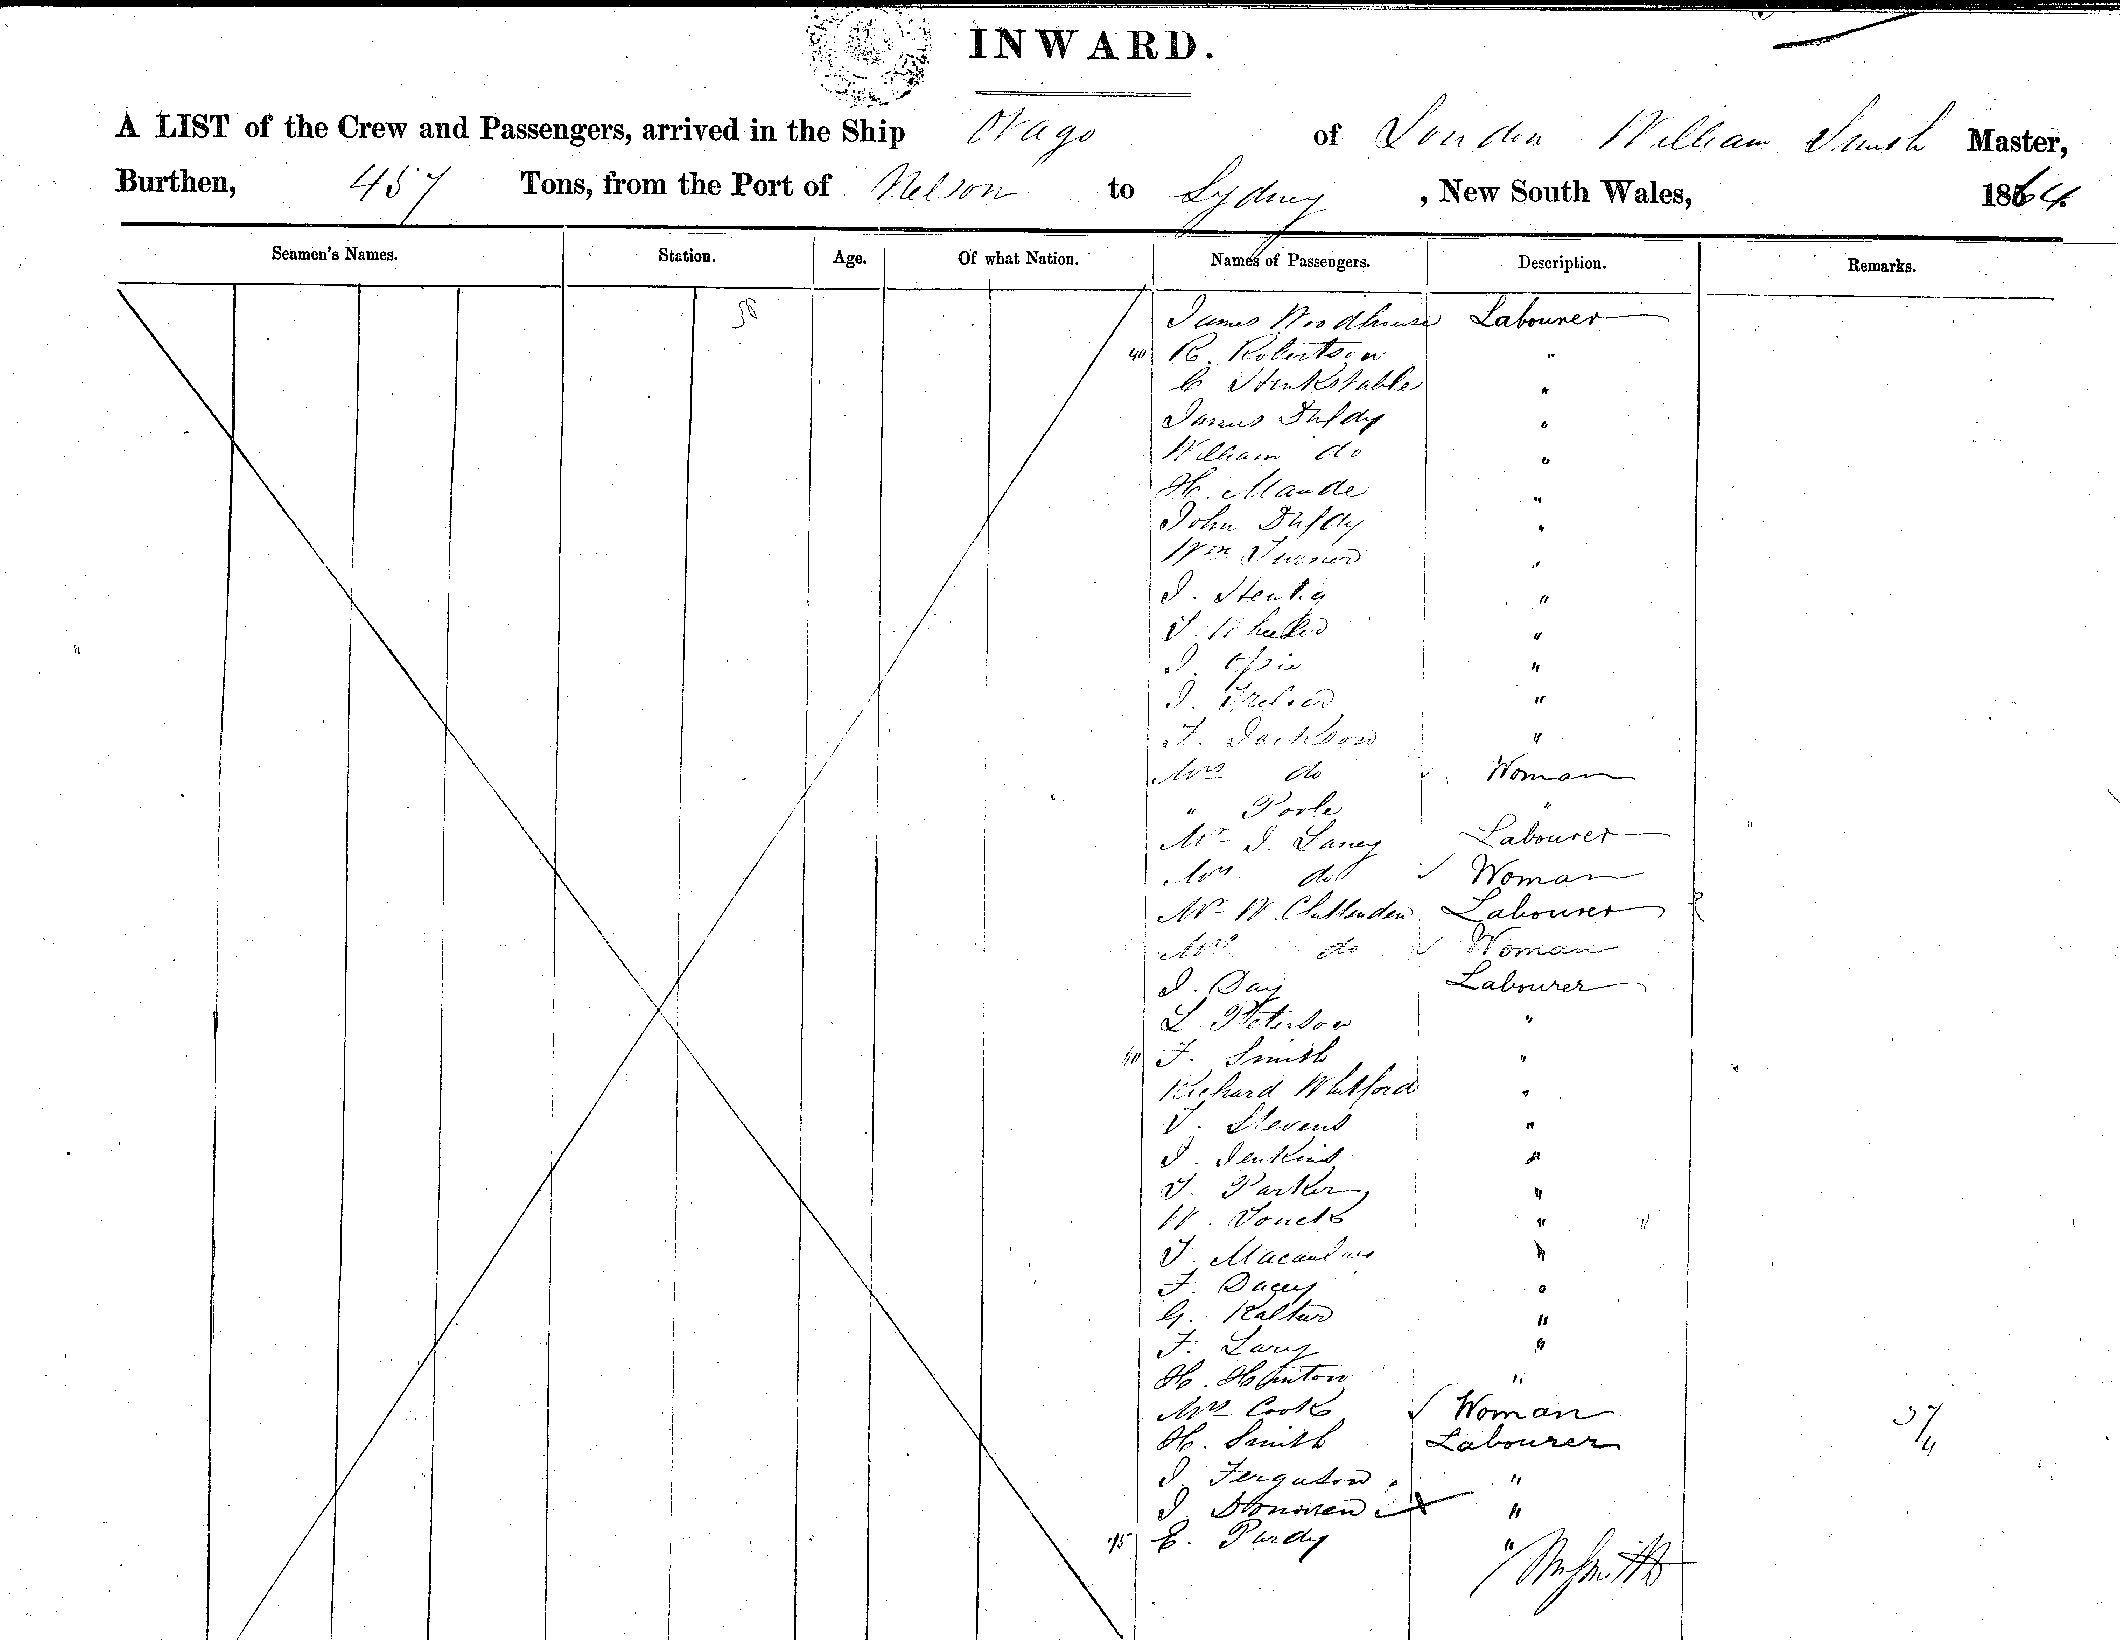 INWARD.
A LIST of the Crew and Passengers, arrived in the Ship Otago of London William Smith Master,
Burthen, 457 Tons, from the Port of Nelson to Sydney, New South Wales, 1864
Seamen's Names. Station. Age. Of what Nation. Names of Passengers. Description. Remarks.
James Woodhouse Labourer
40 R. Robertson "
C "
James "
William do "
H. Maude "
John "
Wm Turner "
J. "
J. "
J. Opie "
J. "
F. Jackson "
Mrs do Woman
" Poole "
Mr J. Laney Labourer
Mrs do Woman
Mr W. Chittenden Labourer
Mrs do Woman
J. Day Labourer
L. Peterson "
F. Smith "
Richard Whitford "
J. Stevens "
J. Jenkins "
J. Parker "
W. "
J. "
F. Dacey "
G. "
F. Lary "
H. Hinton "
Mrs Cook Woman
H. Smith Labourer
J. Ferguson "
J. "
75 E. Purdy "
Wm Smith